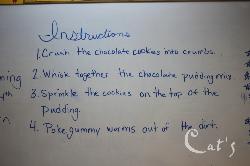 Instructions
1. Crush the chocolate cookies into crumbs.
2. Whisk together the chocolate pudding mix.
3. Sprinkle the cookies on the top of the
pudding.
4. Poke gummy worms out of the dirt.
Cat's